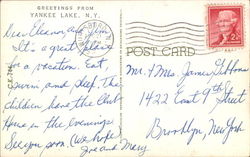 GREETINGS FROM
YANKEE LAKE, N.Y.
Dear Eleanor and Jim
It's a great place
for a vacation. Eat
swim and sleep. The
children have the Club
House in the evenings.
See you soon. (we hope)
Zoe and Mary
POST CARD
2¢
Mr. & Mrs. James Gibbons
1422 East 9th Street
Brooklyn, New York